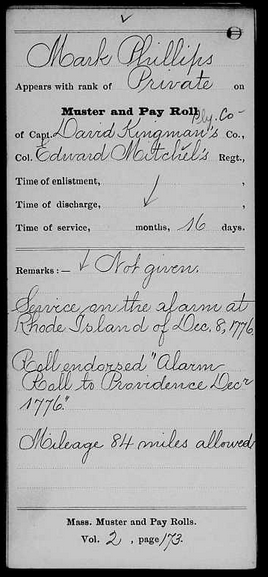 Mark Phillips
Appears with rank of Private on
Muster and Pay Roll
of Capt. David Kingman's Co.,
Col. Edward Mitchel's Regt.,
Time of enlistment,
Time of discharge,
Time of service, months, 16 days.
Remarks:— Not given.
Service on the alarm at
Rhode Island of Dec. 8, 1776
Roll endorsed "Alarm
Roll to Providence Decr
1776."
Mileage 84 miles allowed
Mass. Muster and Pay Rolls.
Vol. 2, page 173.